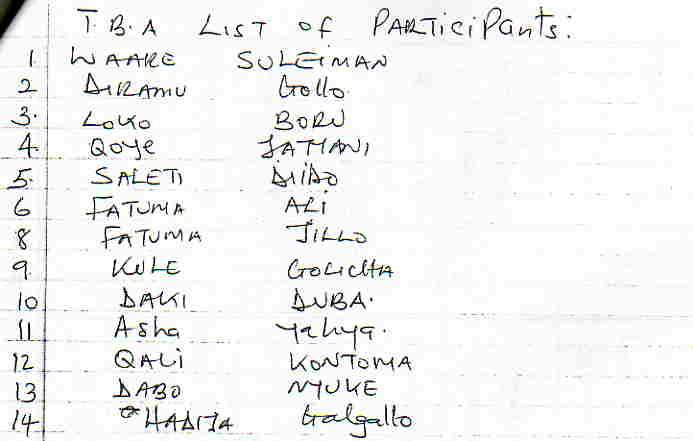 T.B.A LIST of PARTiciPants:
1 WAARE SULEiMAN
2 DIRAMU Gollo.
3. LOKO BORU
4. Qoye JATTANI
5. SALETI DIIDO
6 FATUMA ALi
8 FATUMA JILLO
9. KULE GOLICHA
10 DAKI DUBA.
11 Asha Yahya.
12 QALi KONTOMA
13 DABO NYUKE
14 HADIJA Galgallo